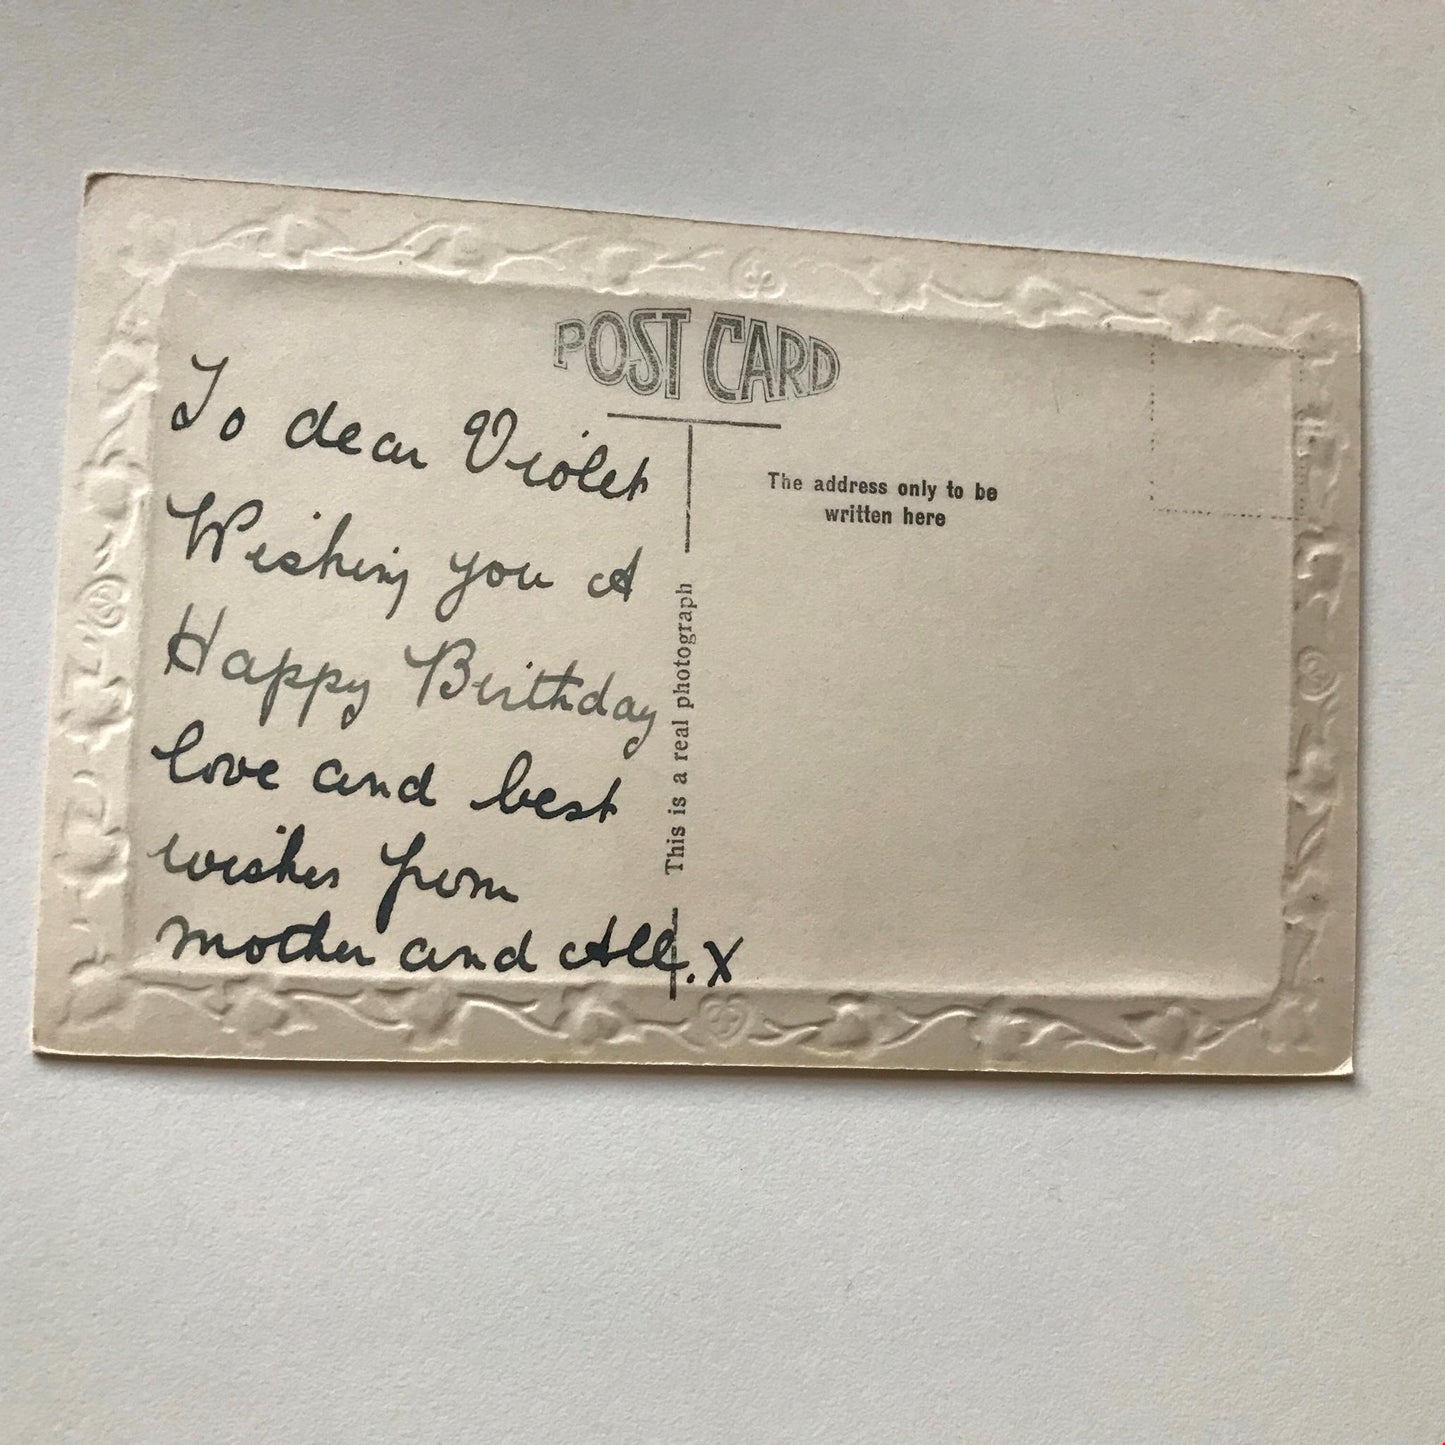 POST CARD
To dear Violet
Wishing you A
Happy Birthday
love and best
wishes from
mother and All. X
This is a real photograph
The address only to be
written here